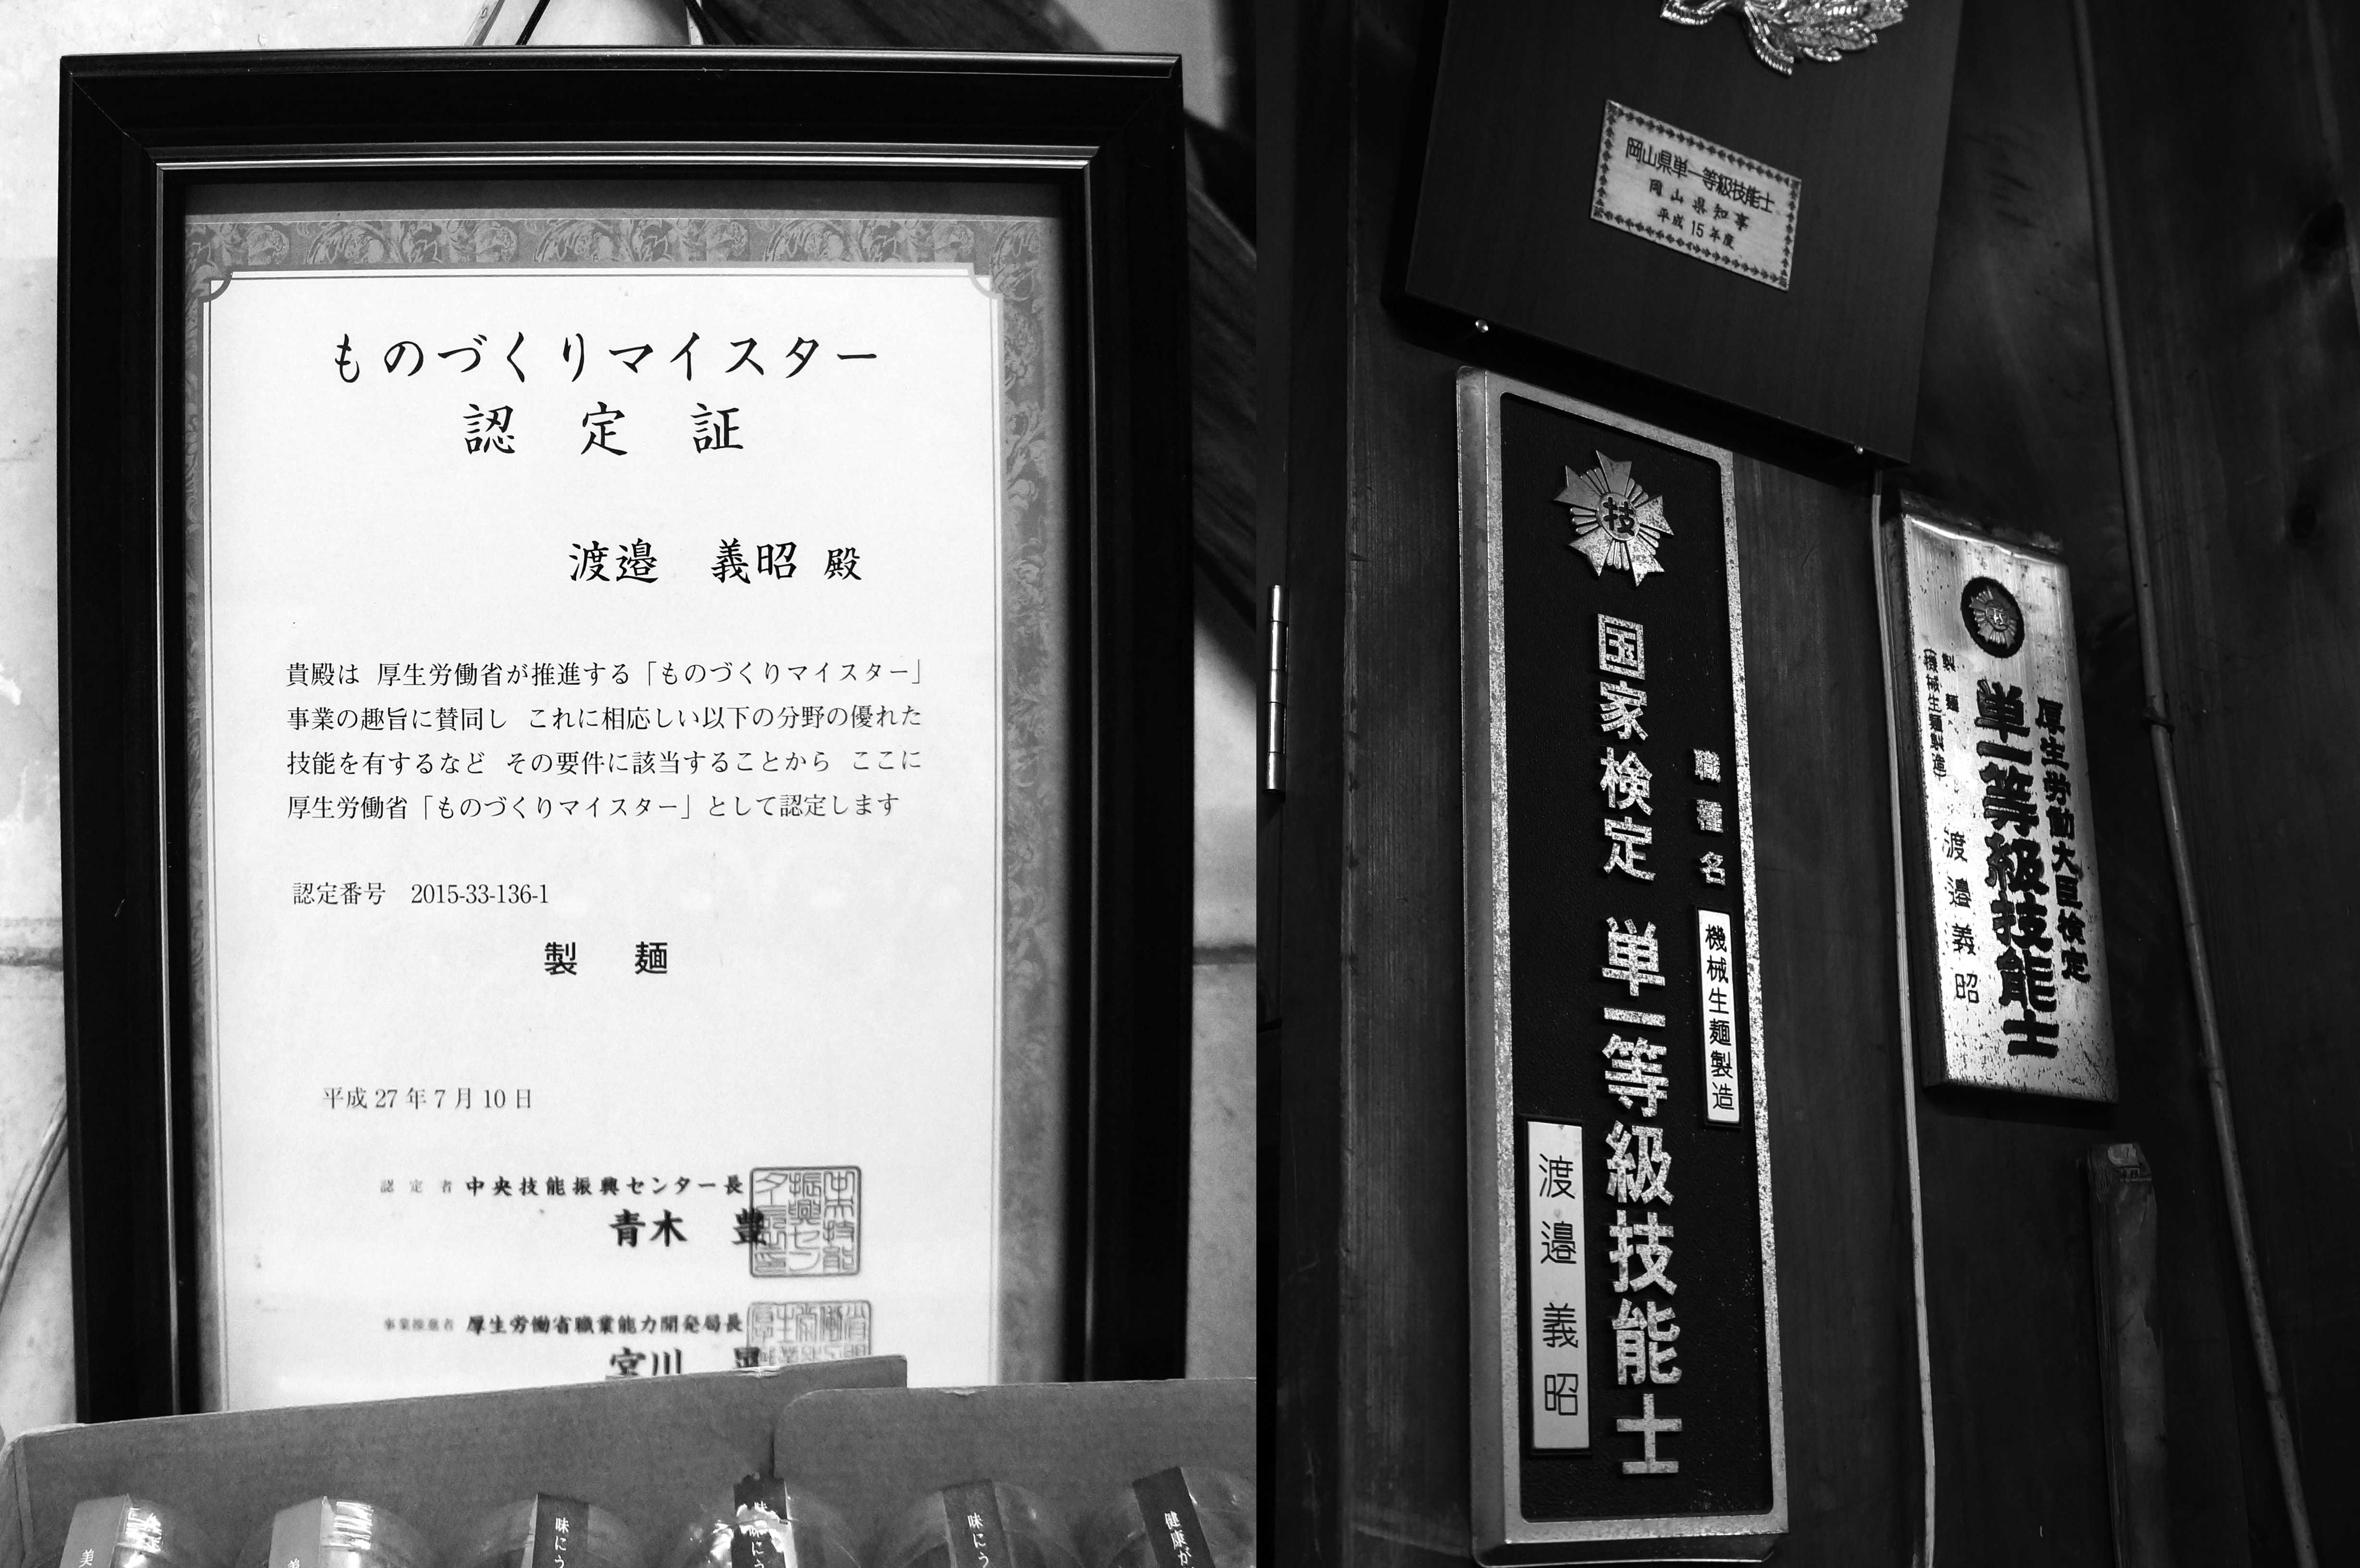 ものづくりマイスター
認定証
渡邉 義昭 殿
貴殿は 厚生労働省が推進する「ものづくりマイスター」
事業の趣旨に賛同し これに相応しい以下の分野の優れた
技能を有するなど その要件に該当することから ここに
厚生労働省「ものづくりマイスター」として認定します
認定番号 2015-33-136-1
製 麺
平成27年7月10日
認定者 中央技能振興センター長
青木 豊
事業推進者 厚生労働省職業能力開発局長
宮川
美
美
味にう
味にう
味にう
健康が
岡山県単一等級技能士
岡山県知事
平成15年度
技
職種名 機械生麺製造
国家検定 単一等級技能士
渡邉義昭
技
厚生労働大臣検定
単一等級技能士
製麺
(機械生麺製造)
渡邉義昭